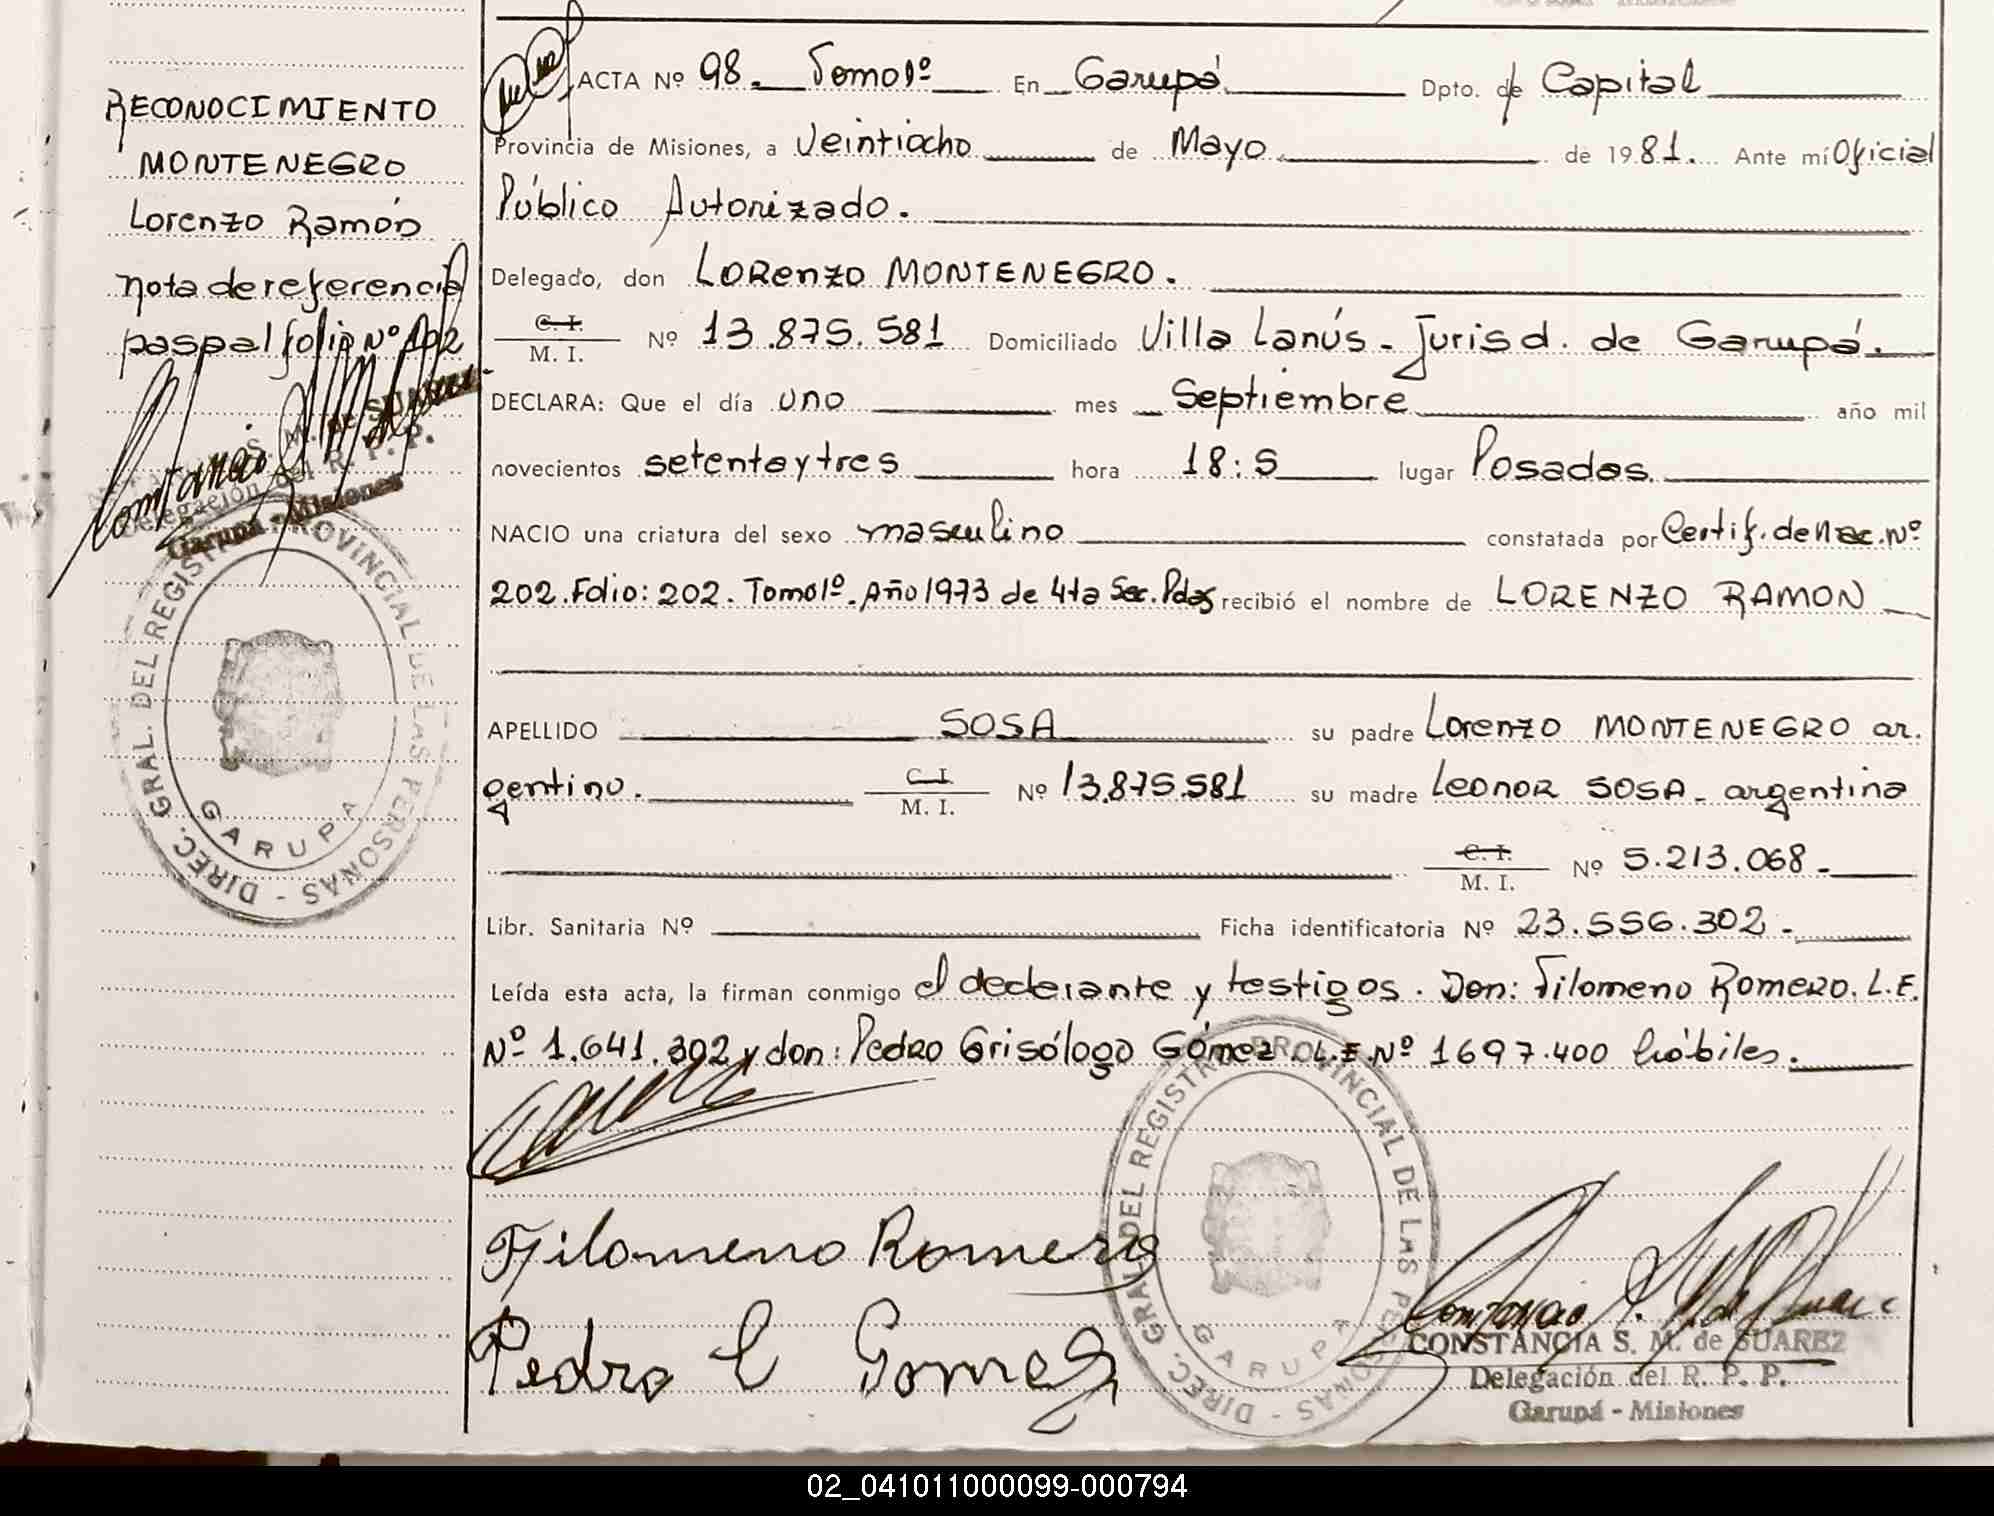 RECONOCIMIENTO
MONTENEGRO
Lorenzo Ramón
nota de referencia
pasp al folio Nº 102
S. M. de SUAREZ
Delegación del R. P. P.
Garupá - Misiones
DIREC. GRAL. DEL REGISTRO PROVINCIAL DE LAS PERSONAS -
GARUPA
ACTA Nº 98. Tomo 1º En Garupá Dpto. de Capital
Provincia de Misiones, a veintiocho de Mayo de 1981. Ante mí Oficial
Público Autorizado.
Delegado, don LORENZO MONTENEGRO.
C. I.
M. I. Nº 13.875.581 Domiciliado Villa Lanús - Jurisd. de Garupá.
DECLARA: Que el día uno mes Septiembre año mil
novecientos setenta y tres hora 18:5 lugar Posadas.
NACIO una criatura del sexo masculino constatada por Certif. de Nac. Nº
202. Folio: 202. Tomo 1º. Año 1973 de 4ta Sec. Pdas recibió el nombre de LORENZO RAMON
APELLIDO SOSA su padre Lorenzo MONTENEGRO ar.
gentino. C. I.
M. I. Nº 13.875.581 su madre Leonor SOSA - argentina
C. I.
M. I. Nº 5.213.068 -
Libr. Sanitaria Nº Ficha identificatoria Nº 23.556.302 -
Leída esta acta, la firman conmigo el declarante y testigos. Don: Filomeno Romero. L.E.
Nº 1.641.302 y don: Pedro Grisólogo Gómez. L.E. Nº 1697.400 hábiles.
Filomeno Romero
Pedro G Gomez
DIREC. GRAL. DEL REGISTRO PROVINCIAL DE LAS PERSONAS -
GARUPA
CONSTANCIA S. M. de SUAREZ
Delegación del R. P. P.
Garupá - Misiones
02_041011000099-000794